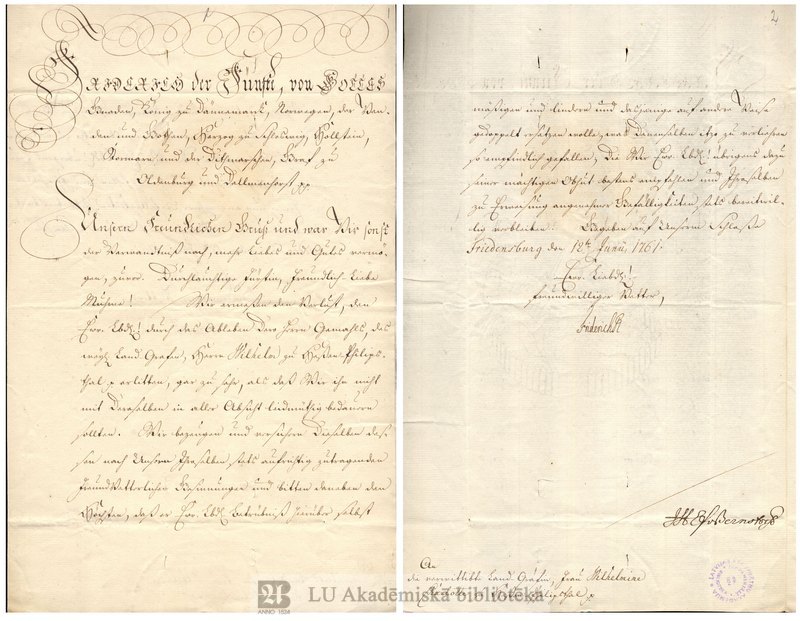 FRIDERICH der Fünfte, von GOTTES
Gnaden, König zu Dännemark, Norwegen, der Wen-
den und Gothen, Herzog zu Schleswig, Hollstein,
Stormarn und der Ditmarschen, Graf zu
Oldenburg und Dellmenhorst pp
Unsern Freundlichen Gruß und was Wir sonst
der Verwandniß nach, mehr Liebes und Gutes vermö-
gen, zuvor. Durchlauchtige Fürstin, freundlich liebe
Muhme! Wir ermeßen den Verlust, den
Ewr. Lbd.! durch das Ableben Dero Herrn Gemahls, des
Land Grafen, Herrn Wilhelm zu Heßen-Philips-
thal p erlitten, gar zu sehr, als daß Wir ihn nicht
mit Derselben in aller Absicht beduren
sollten. Wir bezeugen und versichern Dieselben des-
sen nach Unsern Ihroselben stets aufrichtig zutragenden
FreundVetterlichen Gesinnungen und bitten daneben den
Höchsten, daß er Ewr. Lbd. Betrübniß hierüber selbst
2
mäßigen und lindern und dasjenige auf andre Weise
gedoppelt ersetzen wolle, was Denenselben itzo zu verliehren
so empfindlich gefallen, Die Wir Ewr. Lbd.! übrigens dazu
seiner mächtigen Obhut bestens empfehlen und Ihroselben
zu Erweisung angenehmer Gefälligkeiten stets bereitwil-
lig verbleiben. Gegeben auf Unserm Schloße
Friedensburg den 12ten Junii, 1761.
Ewr. Liebd.!
freundwilliger Vetter,
Friderich R
JHEvBernstorff
An
die verwittibte Land Gräfin, Frau Wilhelmine
Charlotte zu Heßen Philipsthal p
LU Akadēmiskā bibliotēka
ANNO 1524